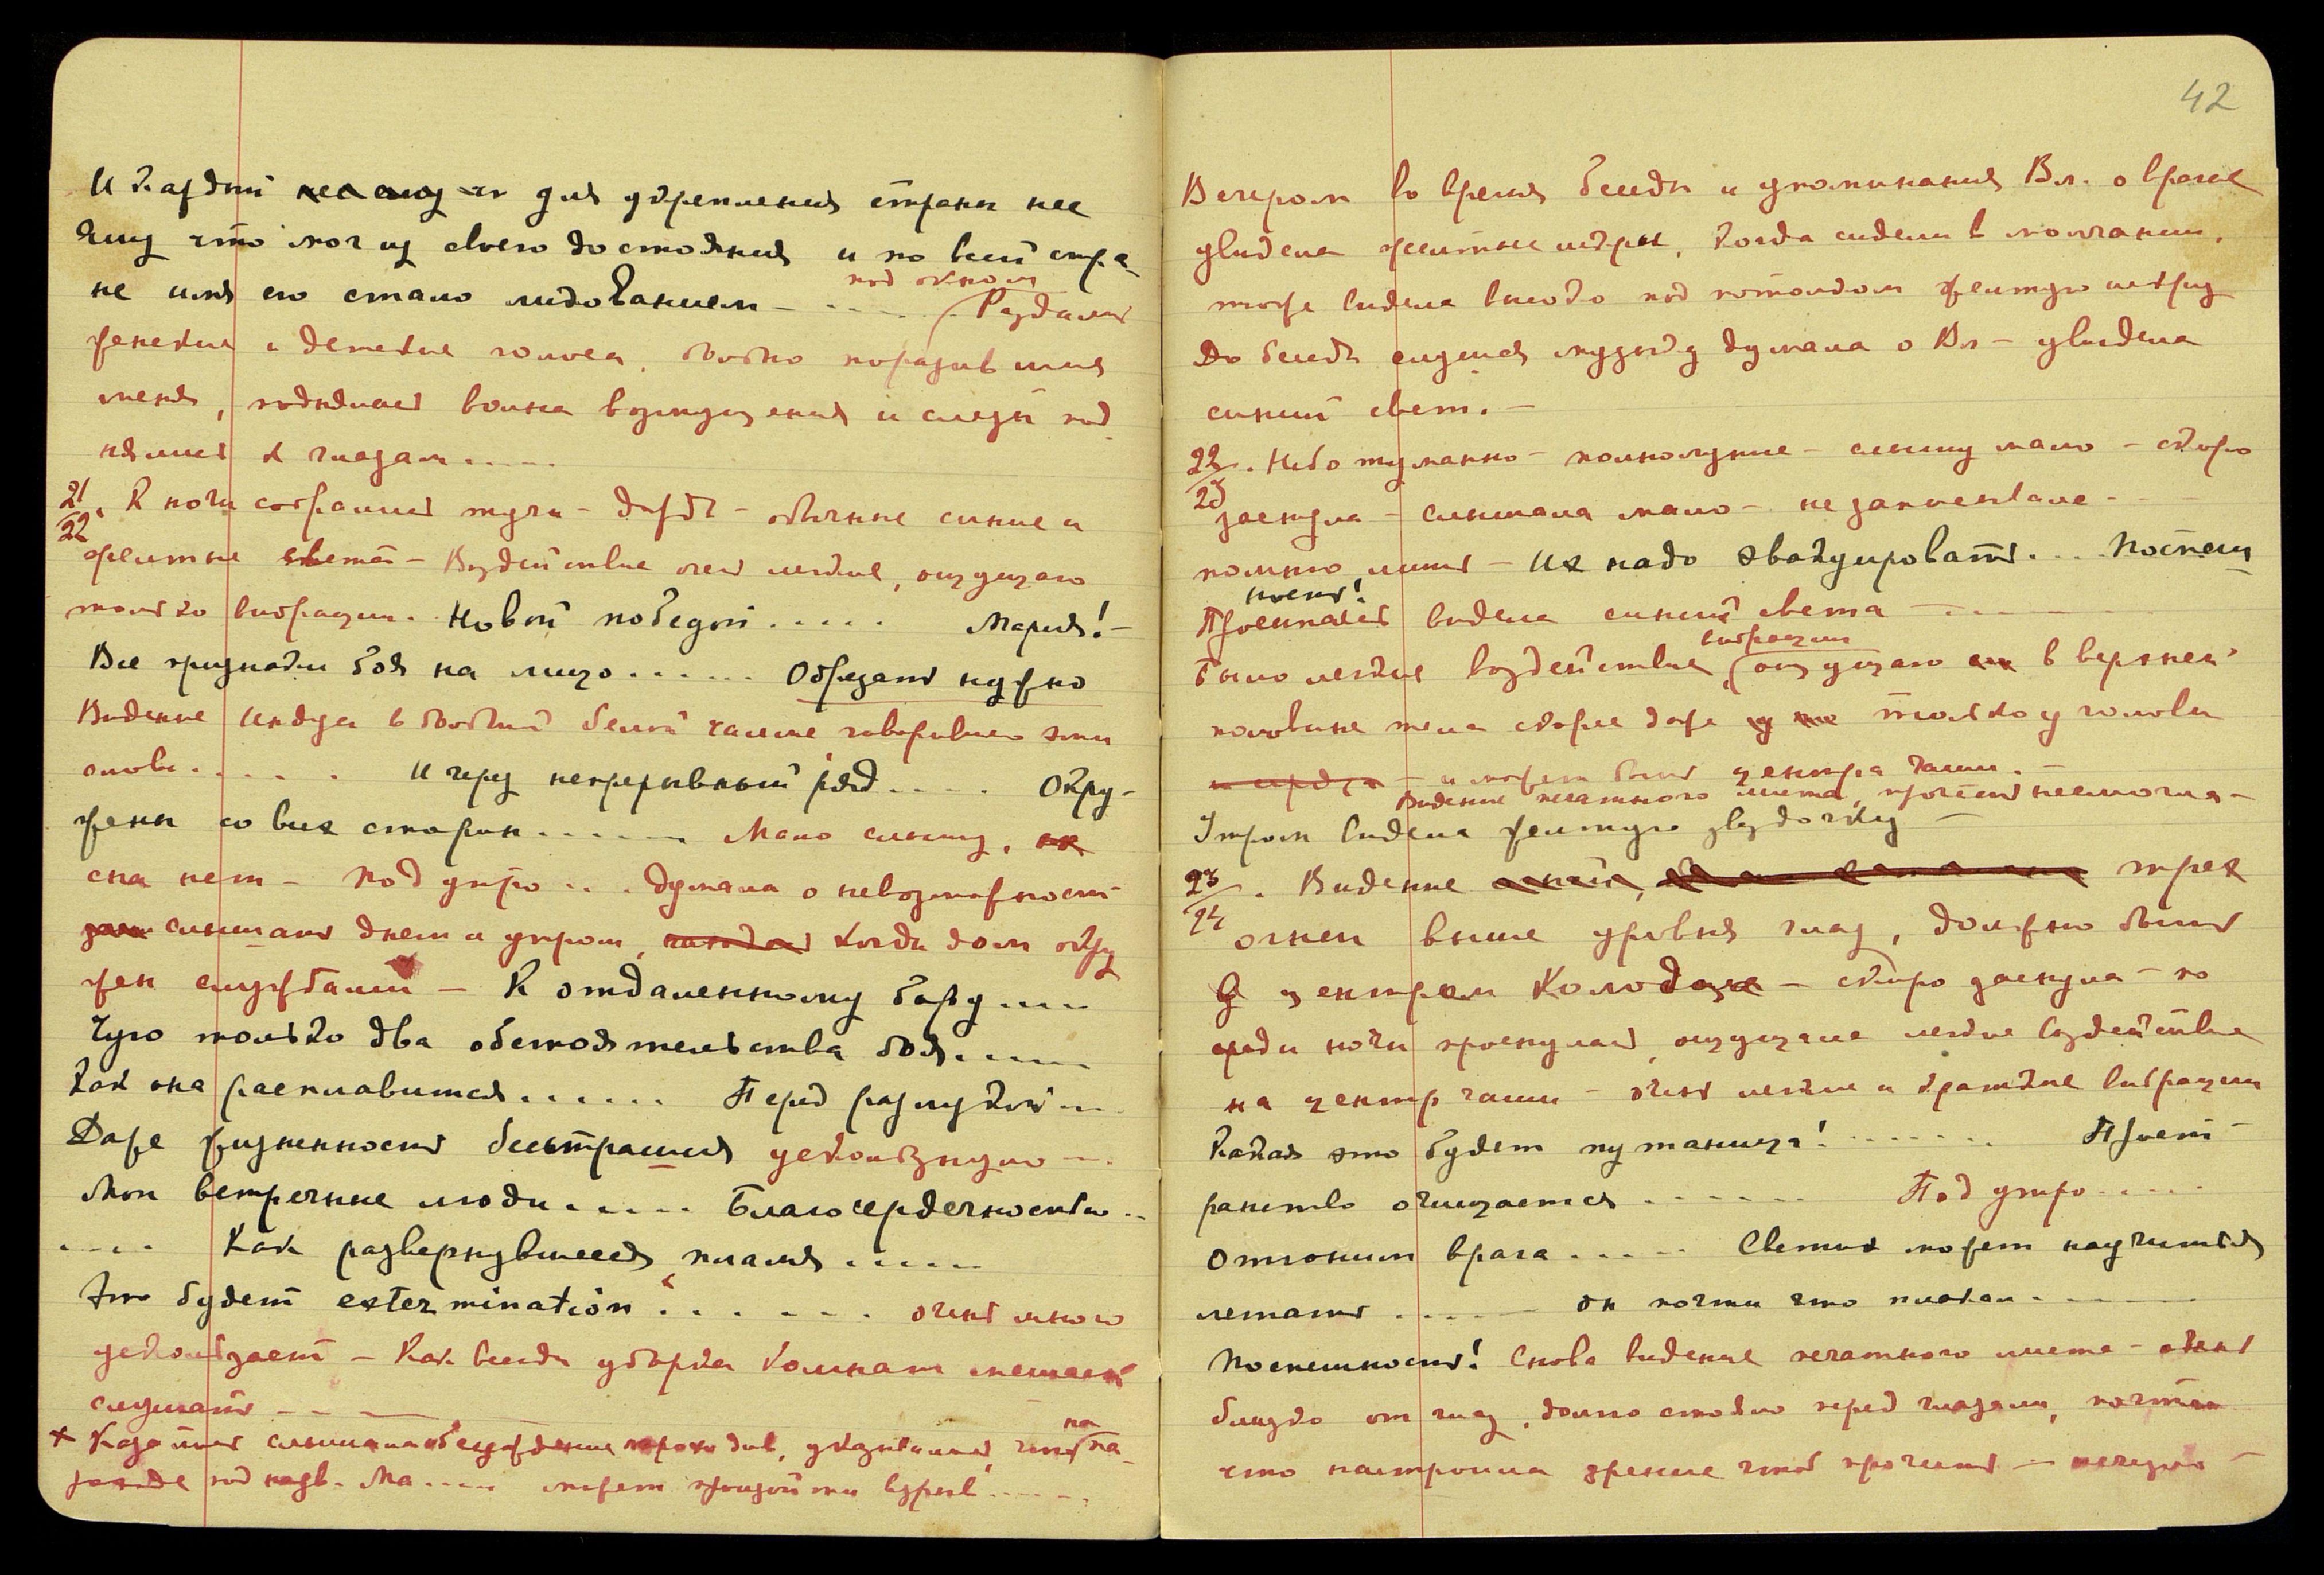 И каждый для укрепления страны нес
Ему что мог из своего достояния и по всей стра-
не имя его стало ликованием - . . . .
под окном
Раздались
женские и детские голоса, особо поразив меня
меня, поднялась волна возмущения и слезы под
нялись к глазам . . . .
21/22. К ночи собрались тучи - дождь - обычные синие и
желтые света - Воздействие очень легкие, ощущаю
только вибрации. Новой победой . . . . . Мария! -
Все признаки боя на лицо . . . . . . Обрезать нужно
Видение индуса в белой чалме, говорившего эти
слова . . . . . . И через непрерывный ряд . . . . . Окру-
жены со всех сторон . . . . . . Мало слышу,
сна нет - Под утро . . . думала о невозможности
слышать днем и утром, когда дом окру
жен службами - К отдаленному . . . .
Чую только два обстоятельства боя . . . . .
Как она расплавится . . . . . . Перед разлукой . . .
Даже жизненность бесстрашия ускользнуло - .
Мои встречные люди . . . . . Благосердечностью . .
. . . . Как развернувшееся пламя . . . . . .
Это будет extermination . . . . . . . очень много
ускользает - Как всегда уборка комнат мешает
слушать - - -
+ Кажется слышала
под назв. Ма . . . . . может произойти взрыв . . . . .
42
Вечером во время беседы и упоминания Вл. о враге
увидела желтые искры, когда сидели в молчании,
тоже видела высоко под потолком желтую искру
До беседы слушая музыку думала о Вл - увидела
синий свет. -
22/23. Небо туманно - полнолуние - слышу мало - скоро
заснула - слышала мало - не записывала - -
помню лишь - Их надо эвакуировать . . . Поспеш
ность!
Просыпаясь видела синий света - . - - -
Было легкие воздействия,
вибрации
ощущаю в верхней
половине тела скорее даже только у головы
- и может быть центра чаши. -
Видение печатного листа, прочесть не смогла -
Утром видела желтую звездочку -
23/24. Видение трех
огней выше уровня глаз, должно быть
центрам Колодца - скоро заснула - по
среди ночи проснулась, ощущала легкие воздействие
на центр чаши - очень легкие и краткие вибрации
Какая это будет путаница! . . . . . . . Прост-
ранство очищается . . . . . . . Под утро . . . . .
Отгоним врага . . . . . Светик может научиться
летать . . . . . - он почти что плакал - . - - -
Поспешность! Снова видение печатного листа - очень
близко от глаз, долго стояло перед глазами, почти
что настроила зрение чтоб прочесть -